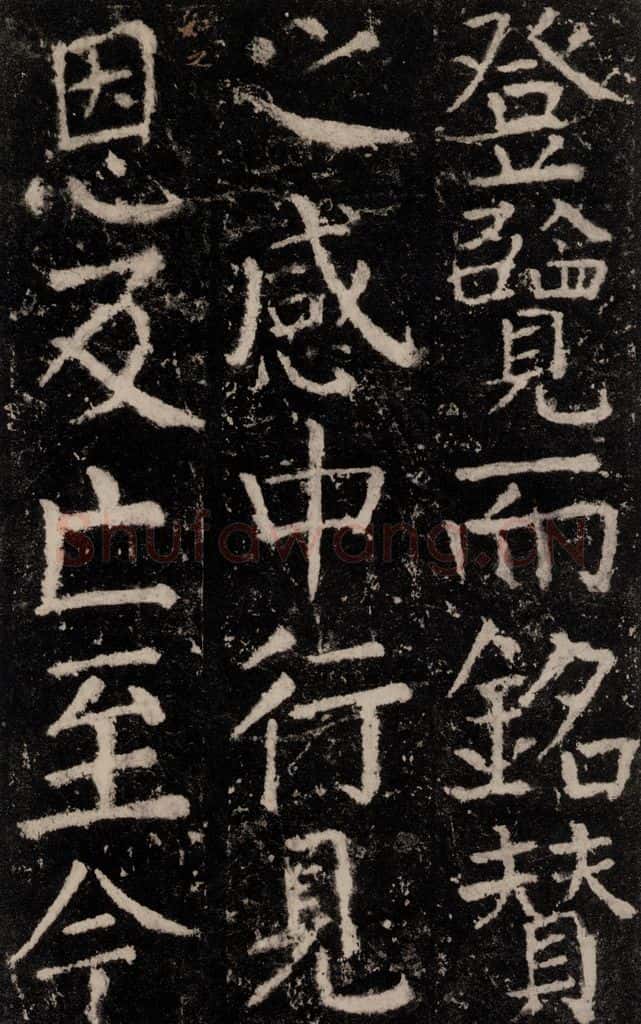 登覽而銘賛
之感中行見
恩及亡至今
Shufawang.CN